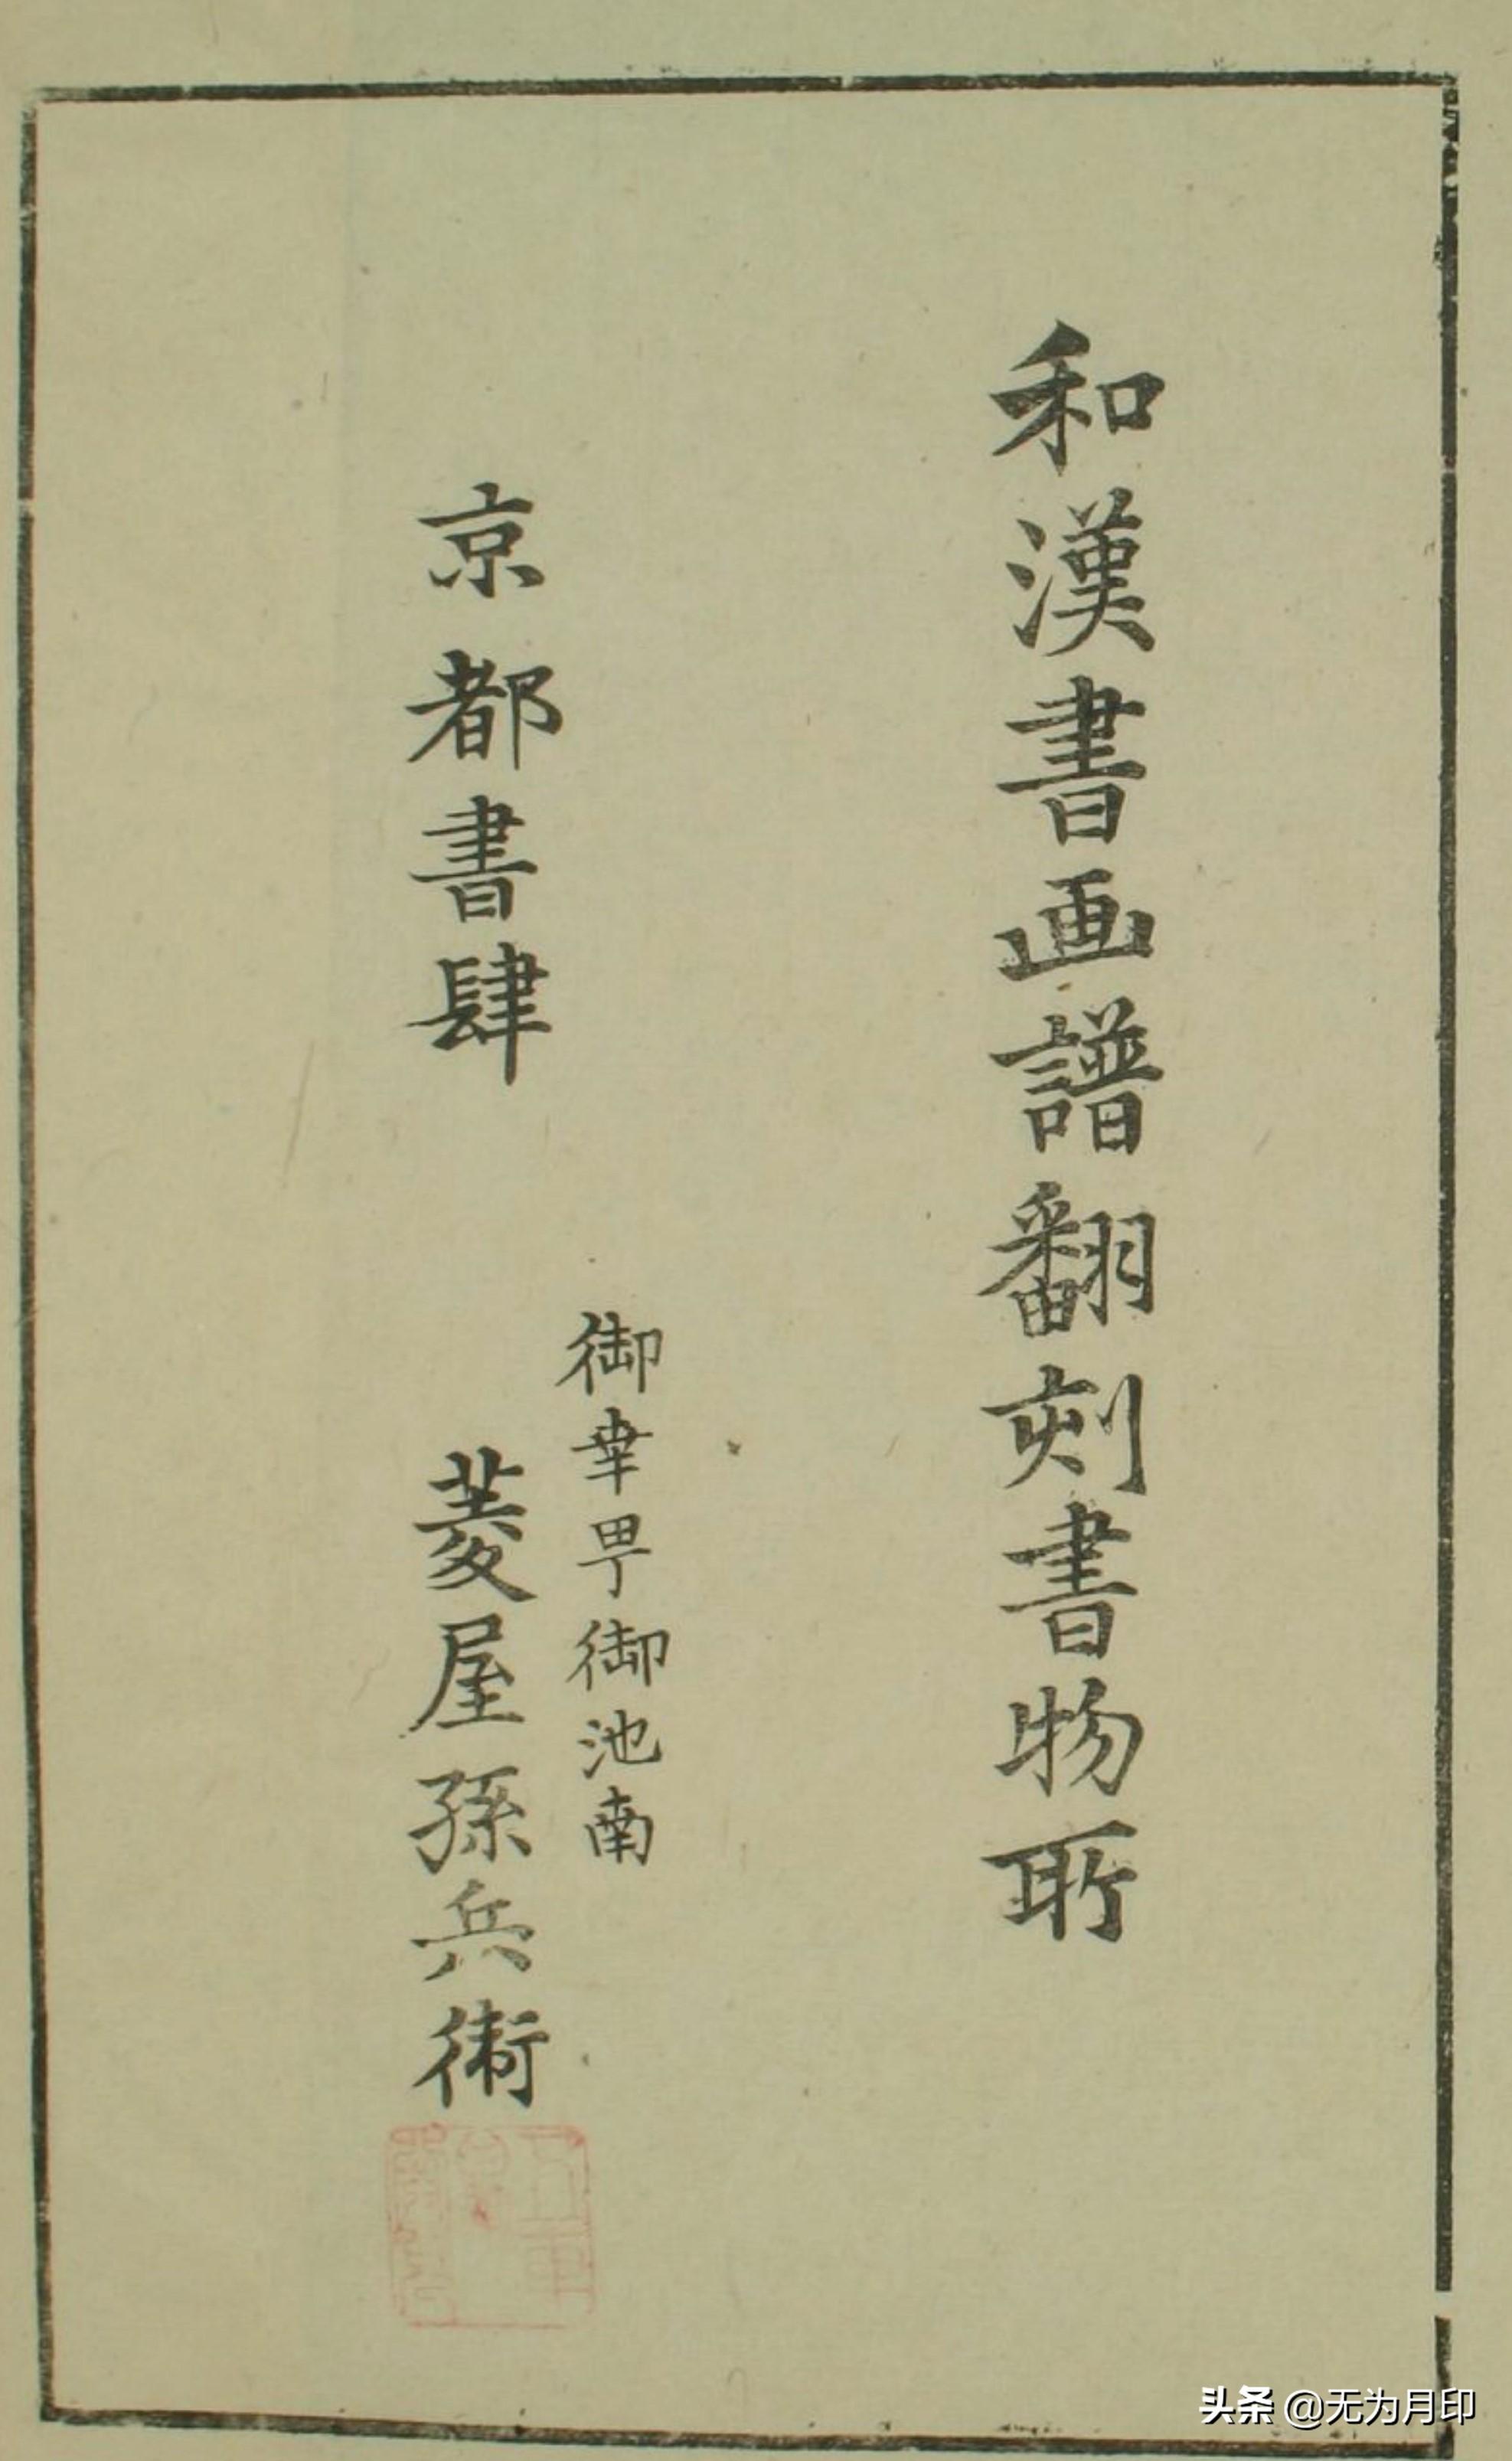 和漢書画譜翻刻書物所
御幸町御池南
京都書肆
菱屋孫兵衛
头条 @无为月印